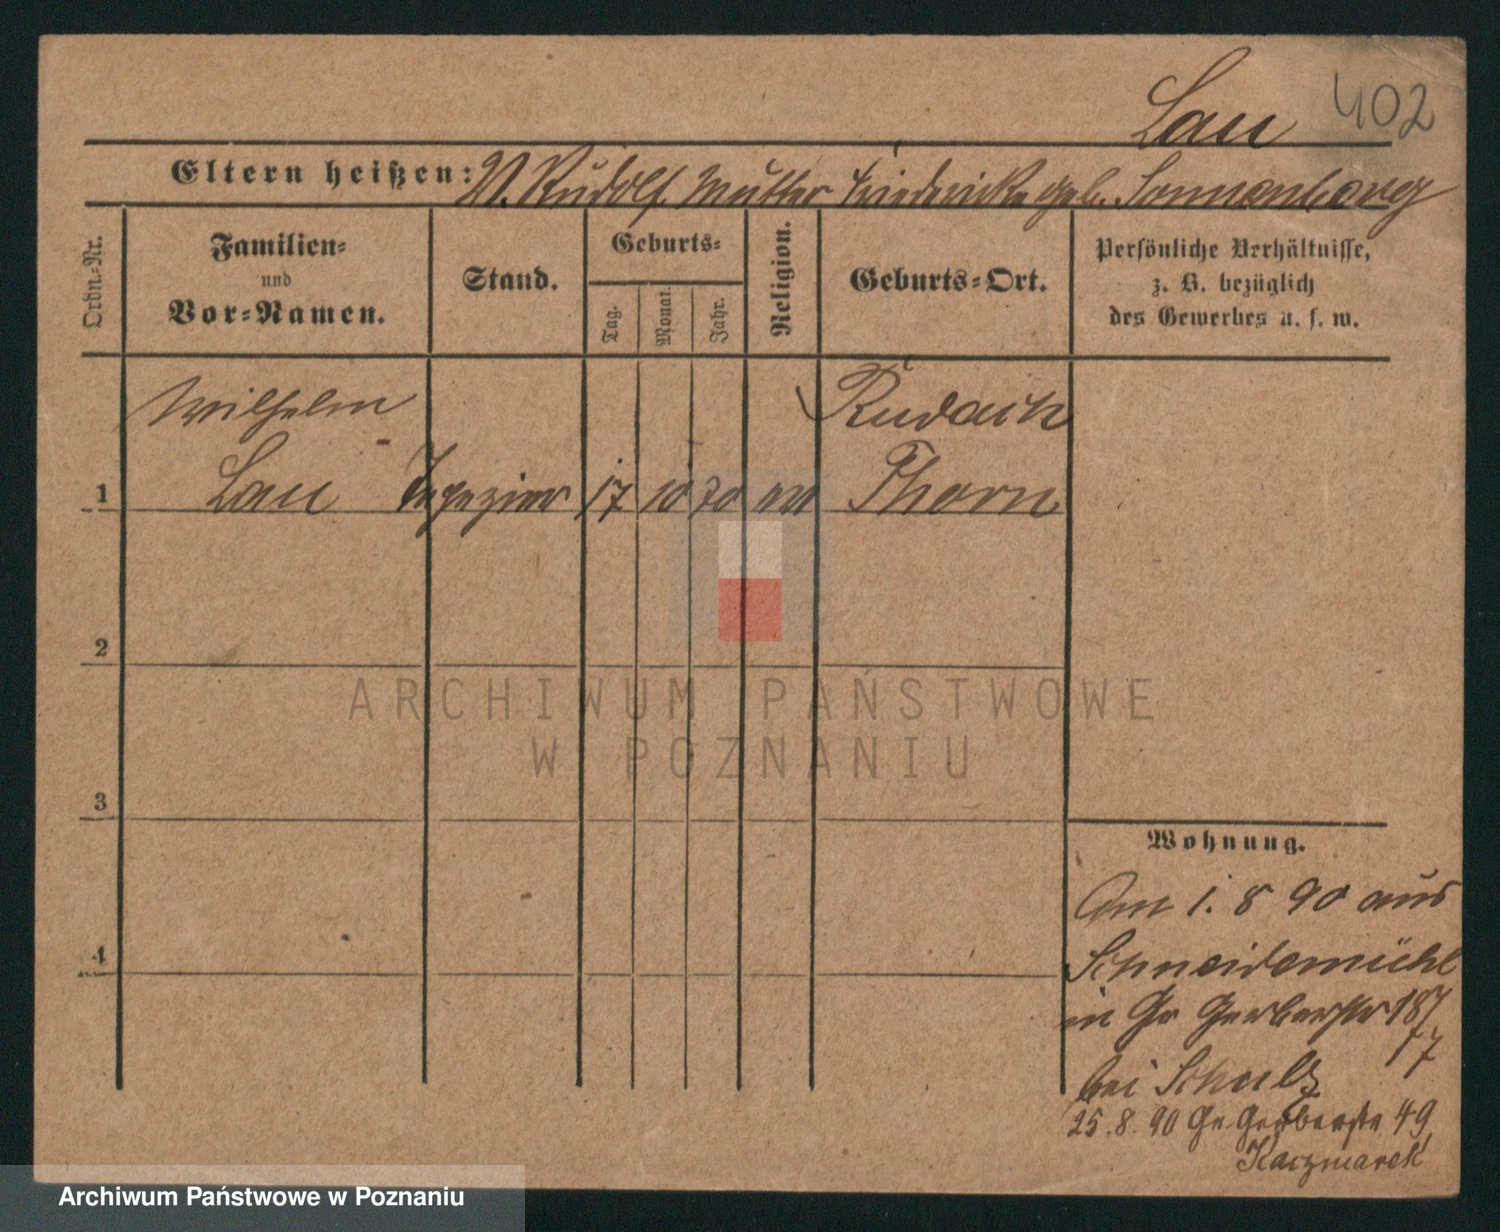 Lau 402
Eltern heißen: V. Rudolf Mutter Friedericke geb. Sonnenberg
Ordn.-Nr.
Familien-
und
Vor-Namen.
Stand.
Geburts-
Tag.
Monat.
Jahr.
Religion.
Geburts-Ort.
Persönliche Verhältnisse,
z. B. bezüglich
des Gewerbes u. s. w.
Wilhelm Rudack
1 Lau Tapezier 17 10 70 ev Thorn
2
3
4
ARCHIWUM PAŃSTWOWE
W POZNANIU
Wohnung.
Am 1. 8 90 aus
Schneidemühl
in Gr Gerberstr 18/
7
bei Schulz
25. 8. 90 Gr. Gerberstr 49
Kaczmarek
Archiwum Państwowe w Poznaniu